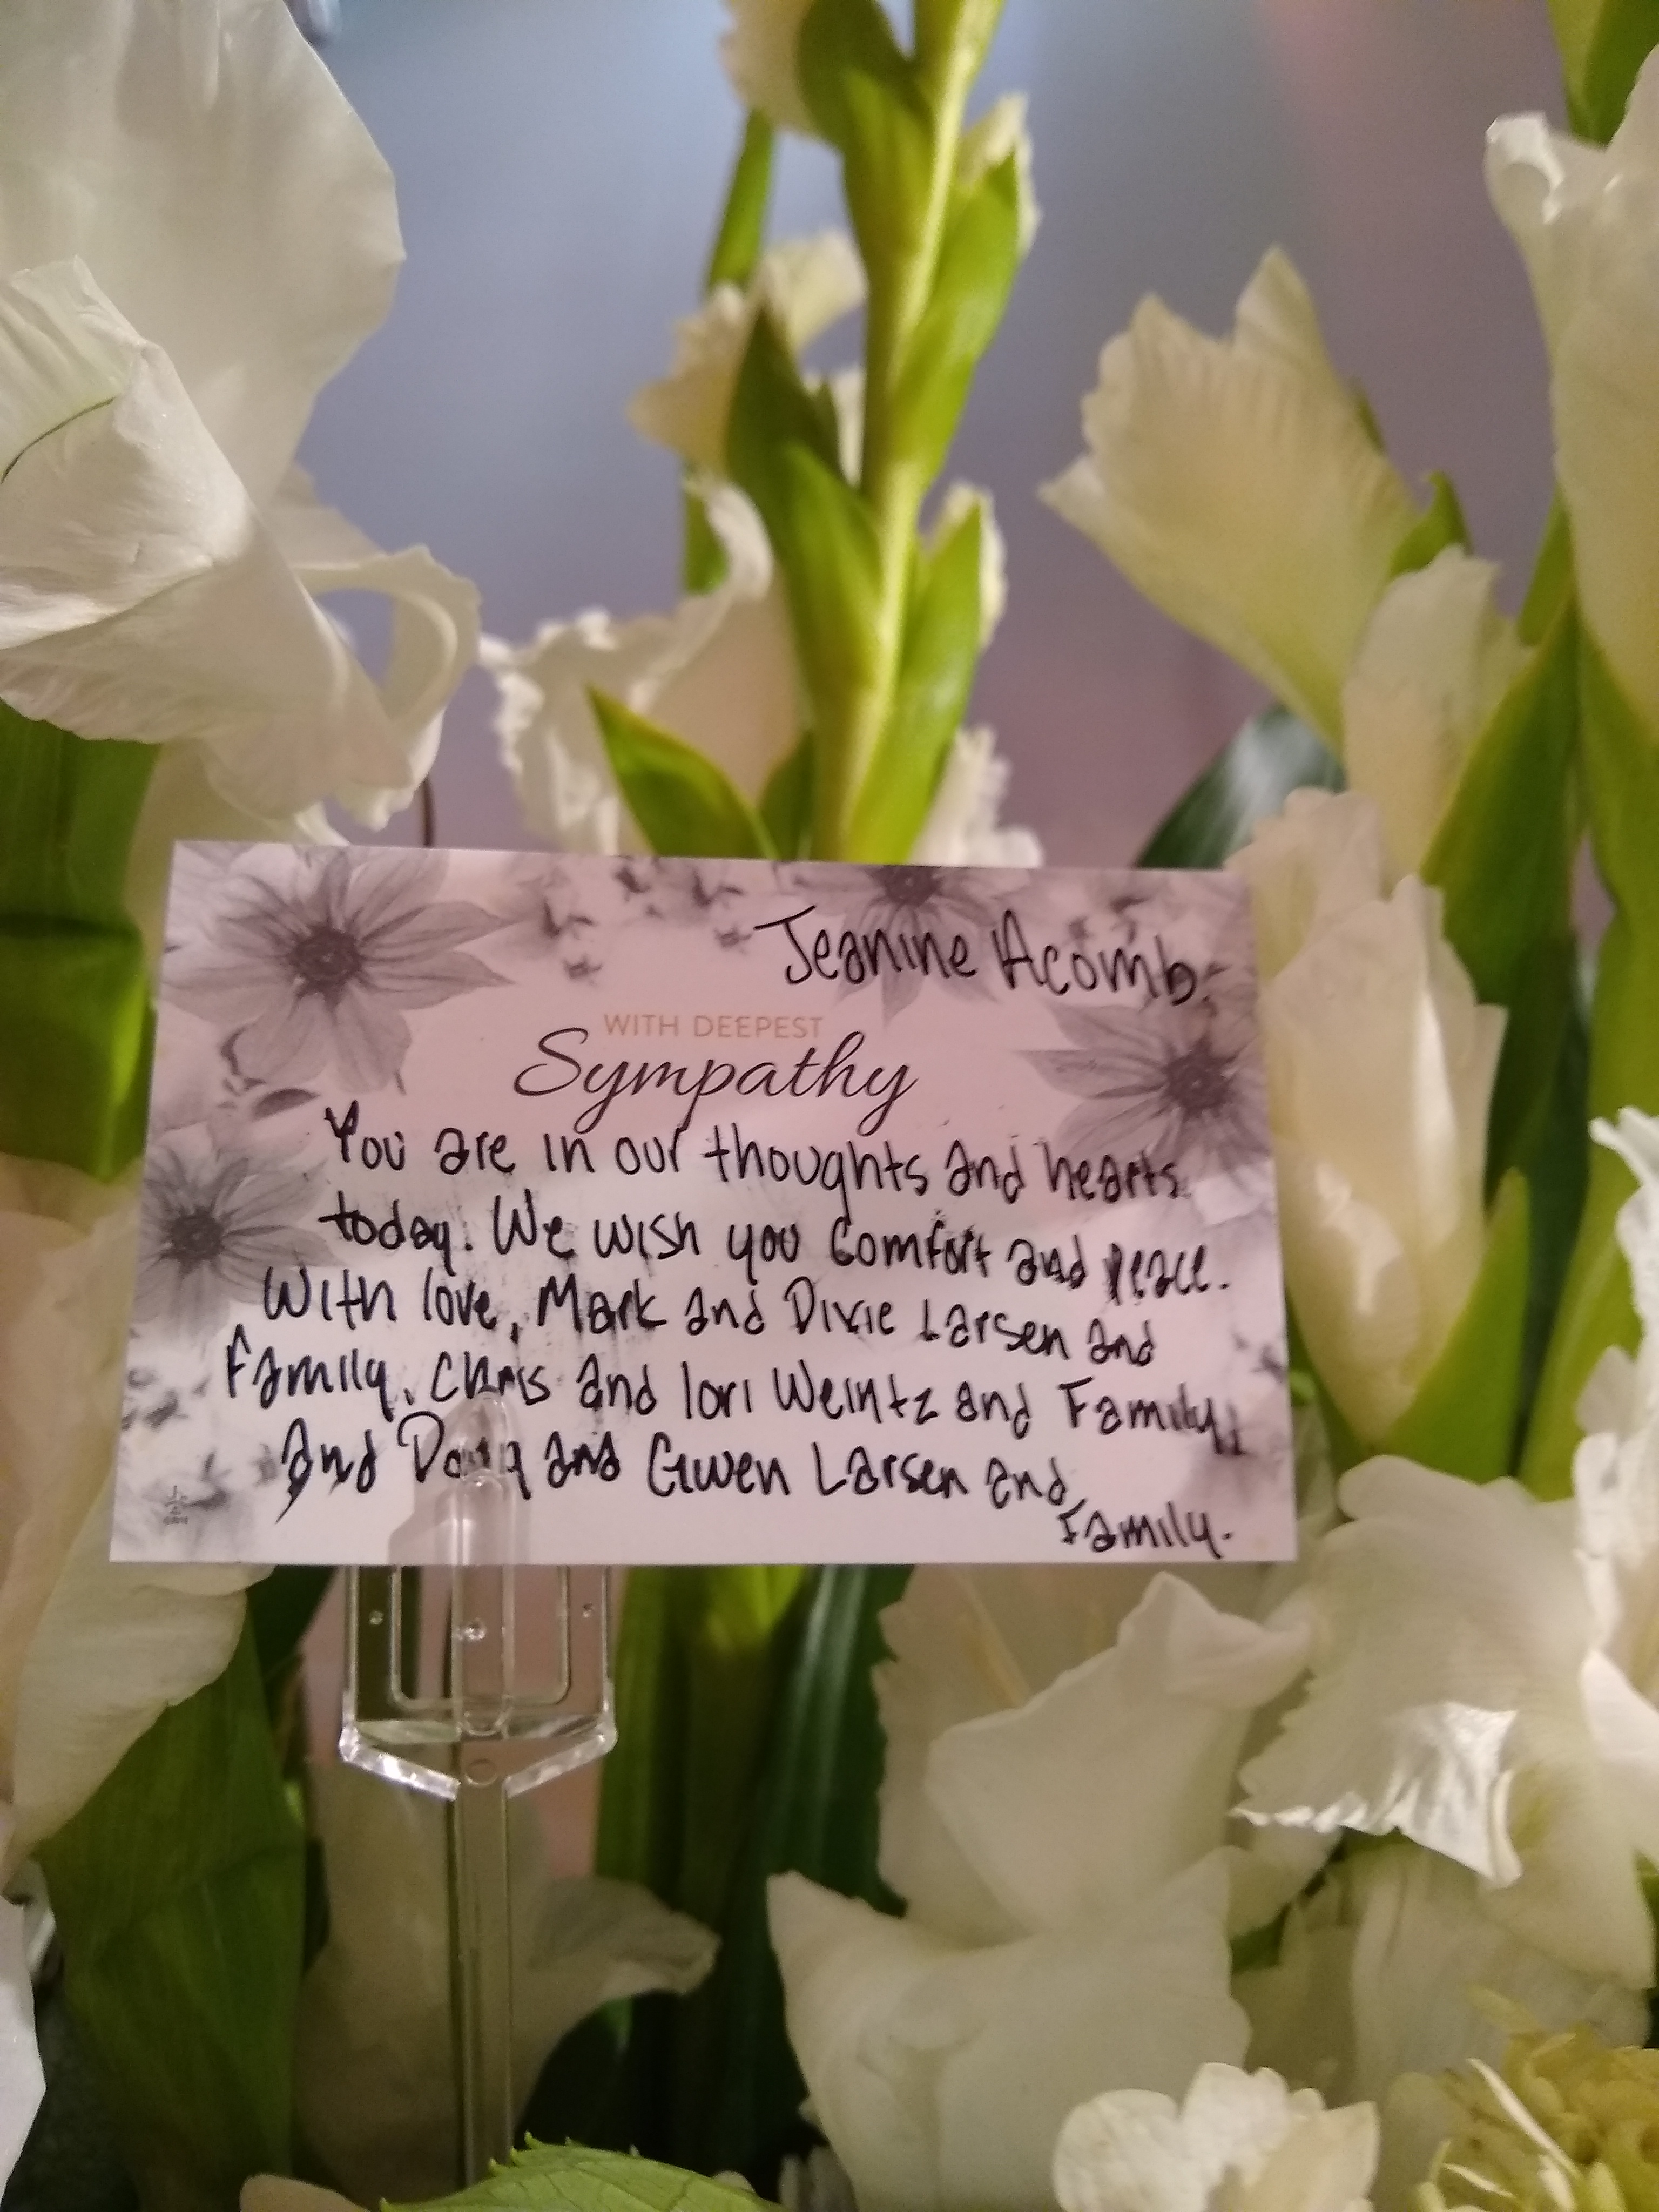 Jeanine Acomb
WITH DEEPEST
Sympathy
You are in our thoughts and hearts
today. We wish you Comfort and peace.
With love, Mark and Dixie Larsen and
Family, Chris and lori Weintz and Family,
and Doug and Gwen Larsen and
Family.